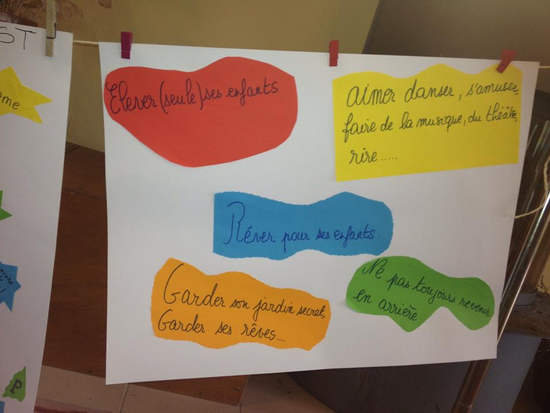 ST
ome
Elever (seule) ses enfants
aimer danser, s'amuser,
faire de la musique, du théâtre,
rire.....
Rêver pour ses enfants.
Garder son jardin secret
Garder ses rêves...
Ne pas toujours revenir
en arrière
P